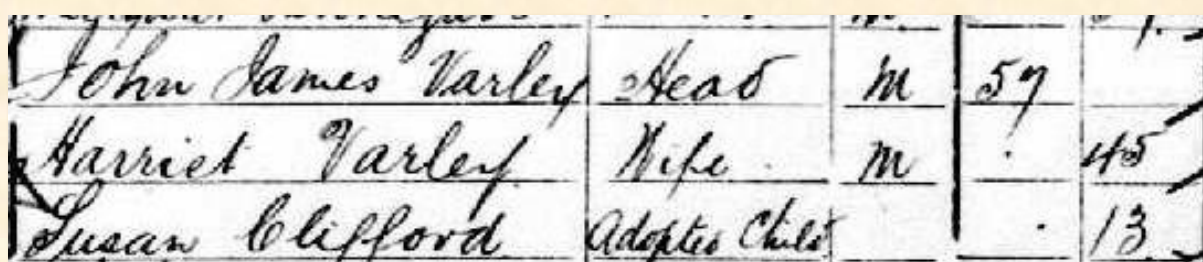 John James Varley Head M 57
Harriet Varley Wife M 45
Susan Clifford Adopted Child 13